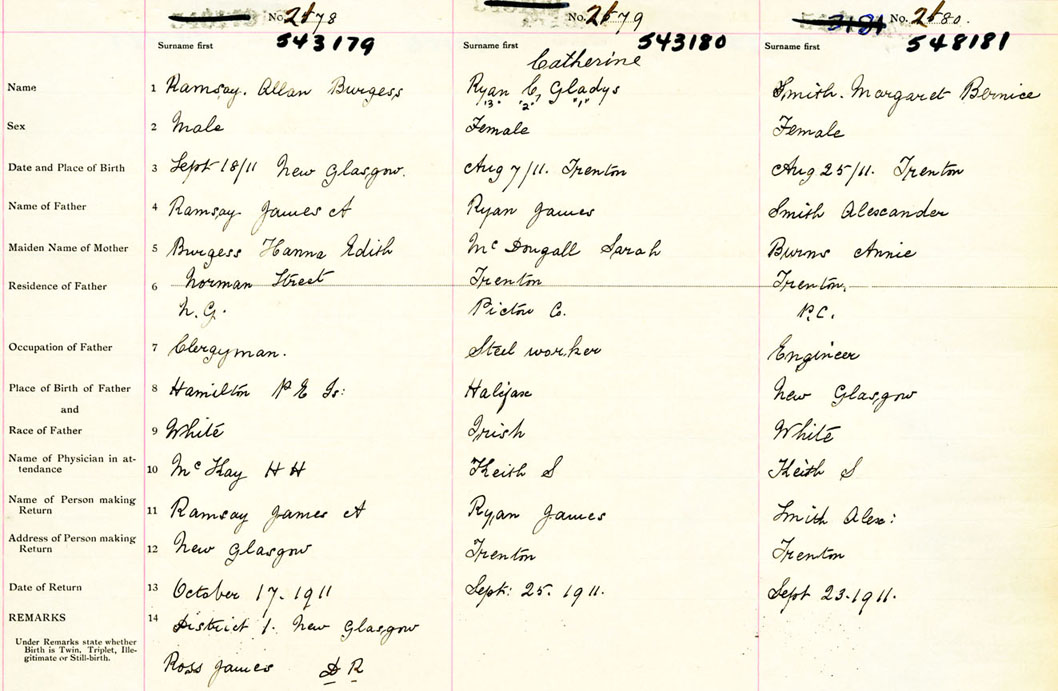 No. 2578
No. 2579
3181 No. 2580.
Surname first 543179
Surname first 543180
Surname first 548181
Catherine
Name 1 Ramsay. Allan Burgess
Ryan C, Gladys
Smith. Margaret Bernice
"3" "2" "1"
Sex 2 Male
Female
Female
Date and Place of Birth 3 Sept 18/11 New Glasgow.
Aug 7/11. Trenton
Aug 25/11. Trenton
Name of Father 4 Ramsay James A
Ryan James
Smith Alexander
Maiden Name of Mother 5 Burgess Hanna Edith
Mc Dougall Sarah
Burns Annie
Residence of Father 6 Norman Street
Trenton
Trenton,
N. G.
Pictou Co.
P.C.
Occupation of Father 7 Clergyman.
Steel worker
Engineer
Place of Birth of Father 8 Hamilton P E Is:
Halifax
New Glasgow
and
Race of Father 9 White
Irish
White
Name of Physician in at-
tendance 10 Mc Kay H H
Keith S
Keith S
Name of Person making
Return 11 Ramsay James A
Ryan James
Smith Alex:
Address of Person making
Return 12 New Glasgow
Trenton
Trenton
Date of Return 13 October 17. 1911
Sept: 25. 1911.
Sept 23. 1911.
REMARKS 14 District 1. New Glasgow
Under Remarks state whether
Birth is Twin, Triplet, Ille-
gitimate or Still-birth.
Ross James D R